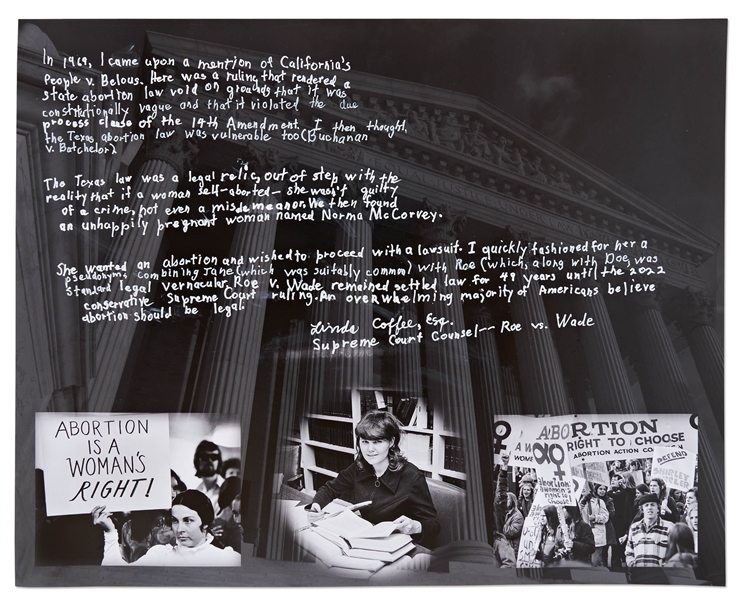 In 1969, I came upon a mention of California's
People v. Belous. Here was a ruling that rendered a
state abortion law void on grounds that it was
constitutionally vague and that it violated the due
process clause of the 14th Amendment. I then thought,
the Texas abortion law was vulnerable too (Buchanan
v. Batchelor)
The Texas law was a legal relic, out of step with the
reality that if a woman self-aborted— she wasn't guilty
of a crime, not even a misdemeanor. We then found
an unhappily pregnant woman named Norma McCorvey.
She wanted an abortion and wished to proceed with a lawsuit. I quickly fashioned for her a
pseudonym, combining Jane (which was suitably common) with Roe (which, along with Doe, was
standard legal vernacular. Roe v. Wade remained settled law for 49 years until the 2022
conservative Supreme Court ruling. An overwhelming majority of Americans believe
abortion should be legal.
Linda Coffee, Esq.
Supreme Court Counsel -- Roe vs. Wade
ABORTION
IS A
WOMAN'S
RIGHT!
ABORTION
RIGHT TO CHOOSE
ABORTION ACTION
DEFEND
SHIRLEY